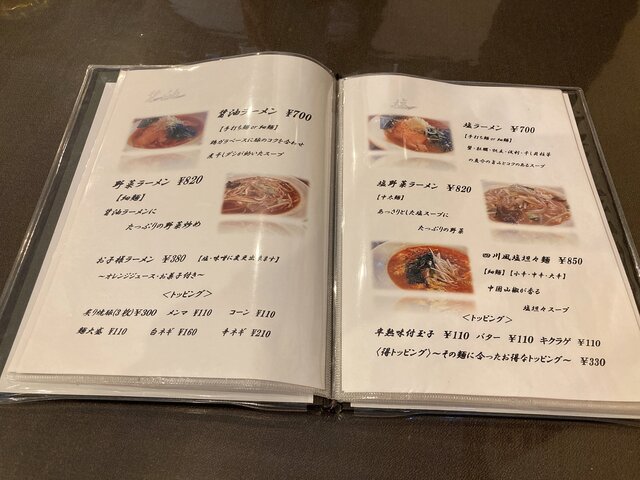 醤油ラーメン ¥700
【手打ち麺or細麺】
鶏ガラベースに豚のコクを合わせ
煮干しダシが効いたスープ
野菜ラーメン ¥820
【細麺】
醤油ラーメンに
たっぷりの野菜炒め
お子様ラーメン ¥380 【塩・味噌に変更出来ます】
～オレンジジュース・お菓子付き～
<トッピング>
炙り焼豚(3枚)¥300 メンマ ¥110 コーン ¥110
麺大盛 ¥110 白ネギ ¥160 辛ネギ ¥210
塩
塩ラーメン ¥700
【手打ち麺or細麺】
の夏今の旨みとコクのあるスープ
塩野菜ラーメン ¥820
【中太麺】
あっさりとした塩スープに
たっぷりの野菜
四川風塩坦々麺 ¥850
【細麺】【小辛・中辛・大辛】
中国山椒が香る
塩坦々スープ
<トッピング>
半熟味付玉子 ¥110 バター ¥110 キクラゲ ¥110
〈得トッピング〉～その麺に合ったお得なトッピング～ ¥330